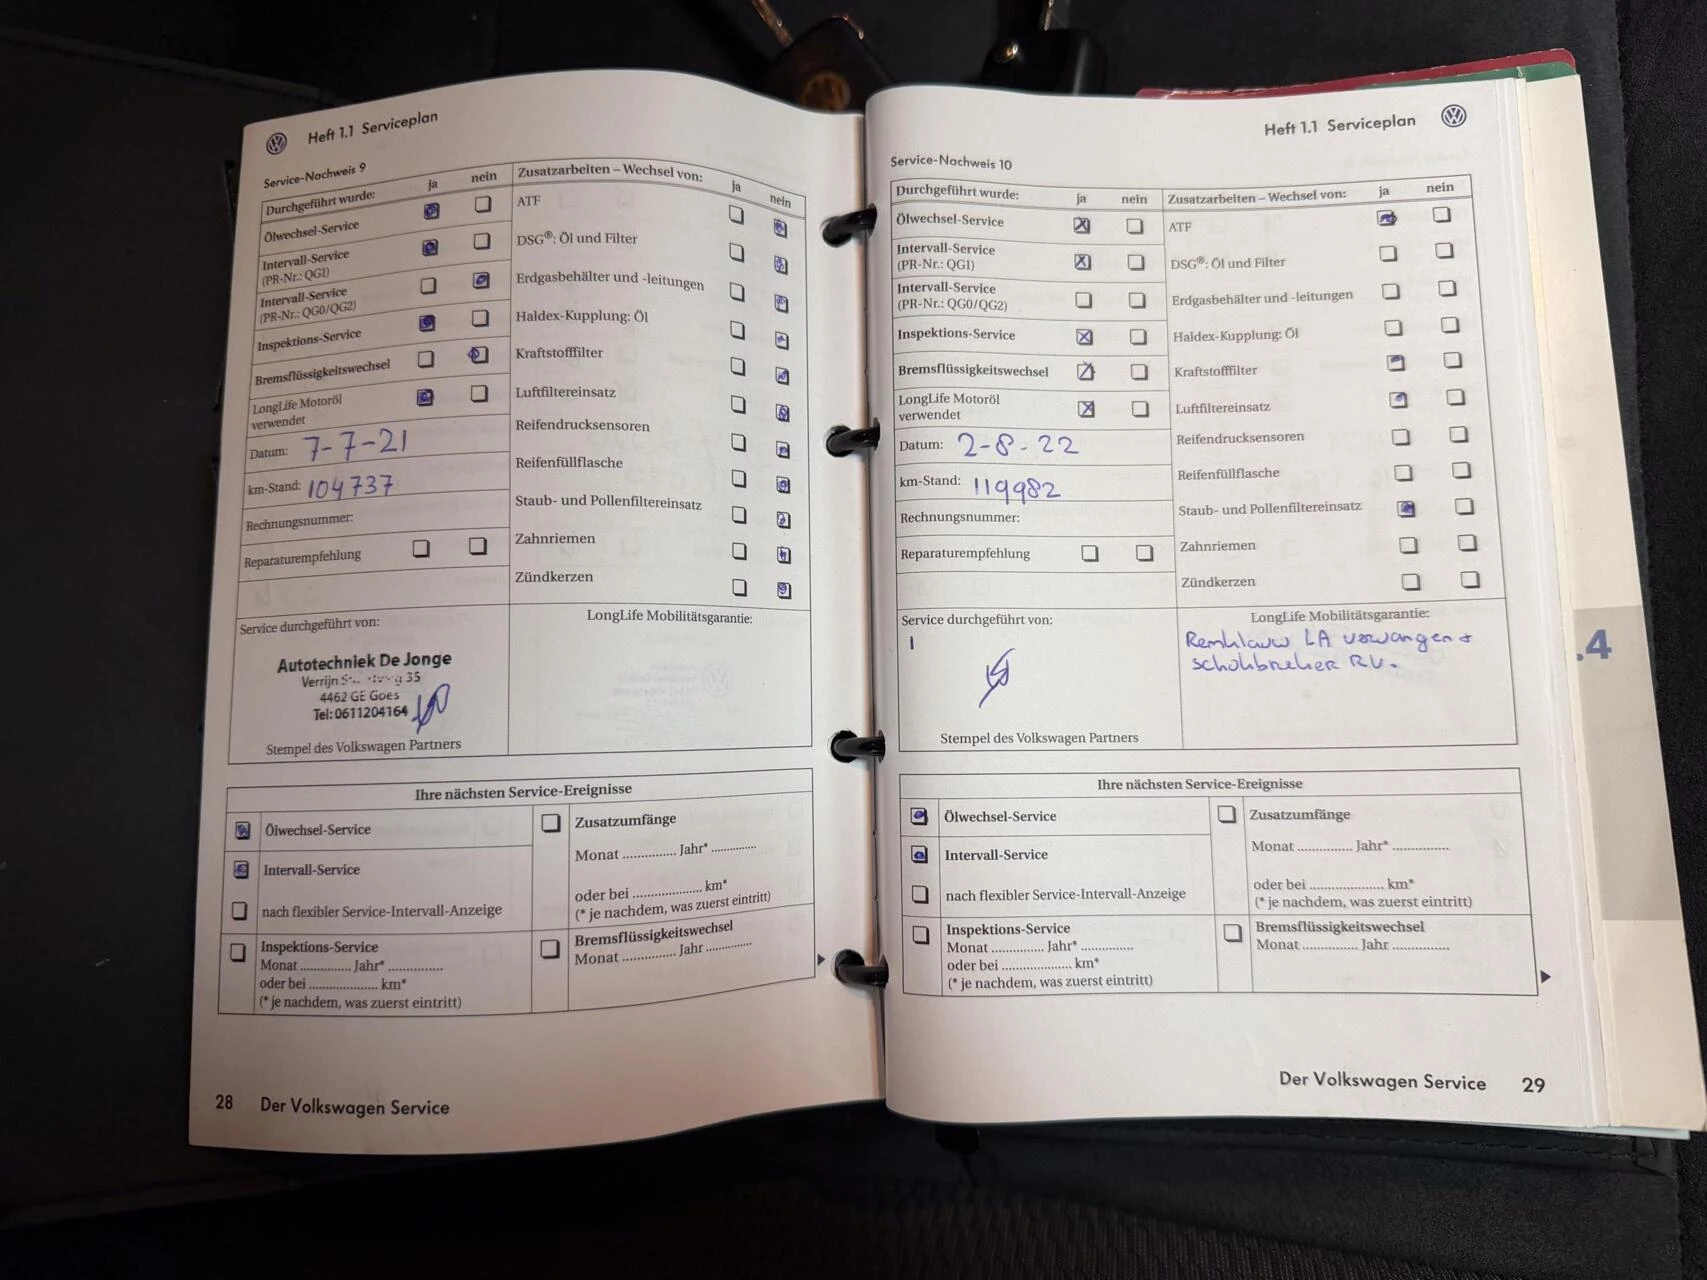 Heft 1.1 Serviceplan
Service-Nachweis 9
Durchgeführt wurde: ja nein
Ölwechsel-Service
Intervall-Service
(PR-Nr.: QG1)
Intervall-Service
(PR-Nr.: QG0/QG2)
Inspektions-Service
Bremsflüssigkeitswechsel
LongLife Motoröl
verwendet
Datum: 7-7-21
km-Stand: 104737
Rechnungsnummer:
Reparaturempfehlung
Zusatzarbeiten – Wechsel von: ja nein
ATF
DSG®: Öl und Filter
Erdgasbehälter und -leitungen
Haldex-Kupplung: Öl
Kraftstofffilter
Luftfiltereinsatz
Reifendrucksensoren
Reifenfüllflasche
Staub- und Pollenfiltereinsatz
Zahnriemen
Zündkerzen
Service durchgeführt von:
Autotechniek De Jonge
Verrijn 35
4462 GE Goes
Tel: 0611204164
Stempel des Volkswagen Partners
LongLife Mobilitätsgarantie:
Ihre nächsten Service-Ereignisse
Ölwechsel-Service
Intervall-Service
nach flexibler Service-Intervall-Anzeige
Inspektions-Service
Monat .............. Jahr* ...............
oder bei .................... km*
(* je nachdem, was zuerst eintritt)
Zusatzumfänge
Monat .............. Jahr* ............
oder bei .................... km*
(* je nachdem, was zuerst eintritt)
Bremsflüssigkeitswechsel
Monat .............. Jahr ............
28 Der Volkswagen Service
Heft 1.1 Serviceplan
Service-Nachweis 10
Durchgeführt wurde: ja nein
Ölwechsel-Service
Intervall-Service
(PR-Nr.: QG1)
Intervall-Service
(PR-Nr.: QG0/QG2)
Inspektions-Service
Bremsflüssigkeitswechsel
LongLife Motoröl
verwendet
Datum: 2-8-22
km-Stand: 119982
Rechnungsnummer:
Reparaturempfehlung
Zusatzarbeiten – Wechsel von: ja nein
ATF
DSG®: Öl und Filter
Erdgasbehälter und -leitungen
Haldex-Kupplung: Öl
Kraftstofffilter
Luftfiltereinsatz
Reifendrucksensoren
Reifenfüllflasche
Staub- und Pollenfiltereinsatz
Zahnriemen
Zündkerzen
Service durchgeführt von:
Stempel des Volkswagen Partners
LongLife Mobilitätsgarantie:
Remklauw LA vervangen +
schokbreker RV.
Ihre nächsten Service-Ereignisse
Ölwechsel-Service
Intervall-Service
nach flexibler Service-Intervall-Anzeige
Inspektions-Service
Monat .............. Jahr* ..............
oder bei .................... km*
(* je nachdem, was zuerst eintritt)
Zusatzumfänge
Monat .............. Jahr* ..............
oder bei .................... km*
(* je nachdem, was zuerst eintritt)
Bremsflüssigkeitswechsel
Monat .............. Jahr ..............
Der Volkswagen Service 29
.4